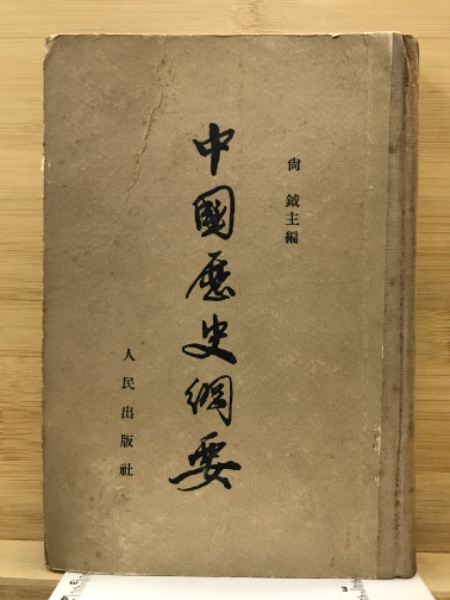 尙 鉞主編
中國歷史綱要
人民出版社
3